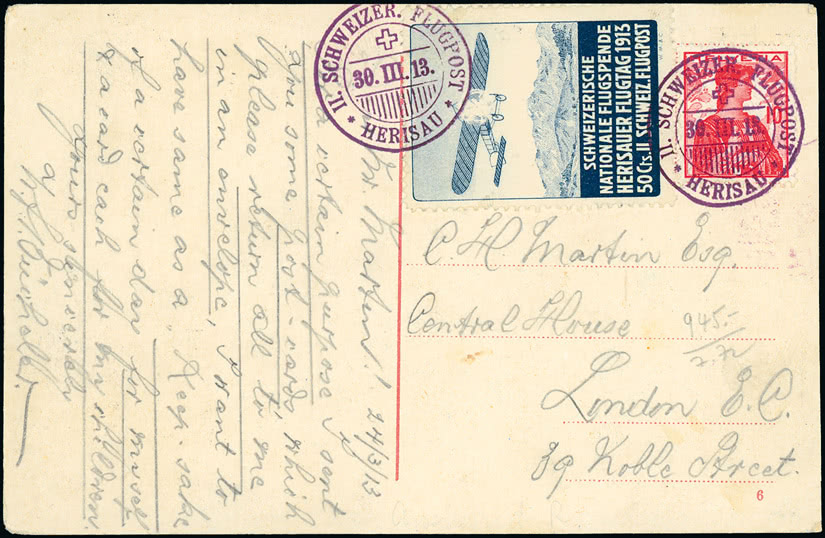 II. SCHWEIZER. FLUGPOST
30. III. 13.
* HERISAU *
SCHWEIZERISCHE
NATIONALE FLUGSPENDE
HERISAUER FLUGTAG 1913
50 Cts. II. SCHWEIZ. FLUGPOST
HELVETIA
10
II. SCHWEIZER. FLUGPOST
30. III. 13.
* HERISAU *
C H Martin Esq.
Central House
London E.C.
39 Noble Street.
945.-
6
Mr Martin! 24/3/13
a certain purpose I sent
you some post-cards which
please return all to me
in an envelope, I want to
have same as a Keep-sake
of a certain day for myself
& a card each for my children.
Yours sincerely